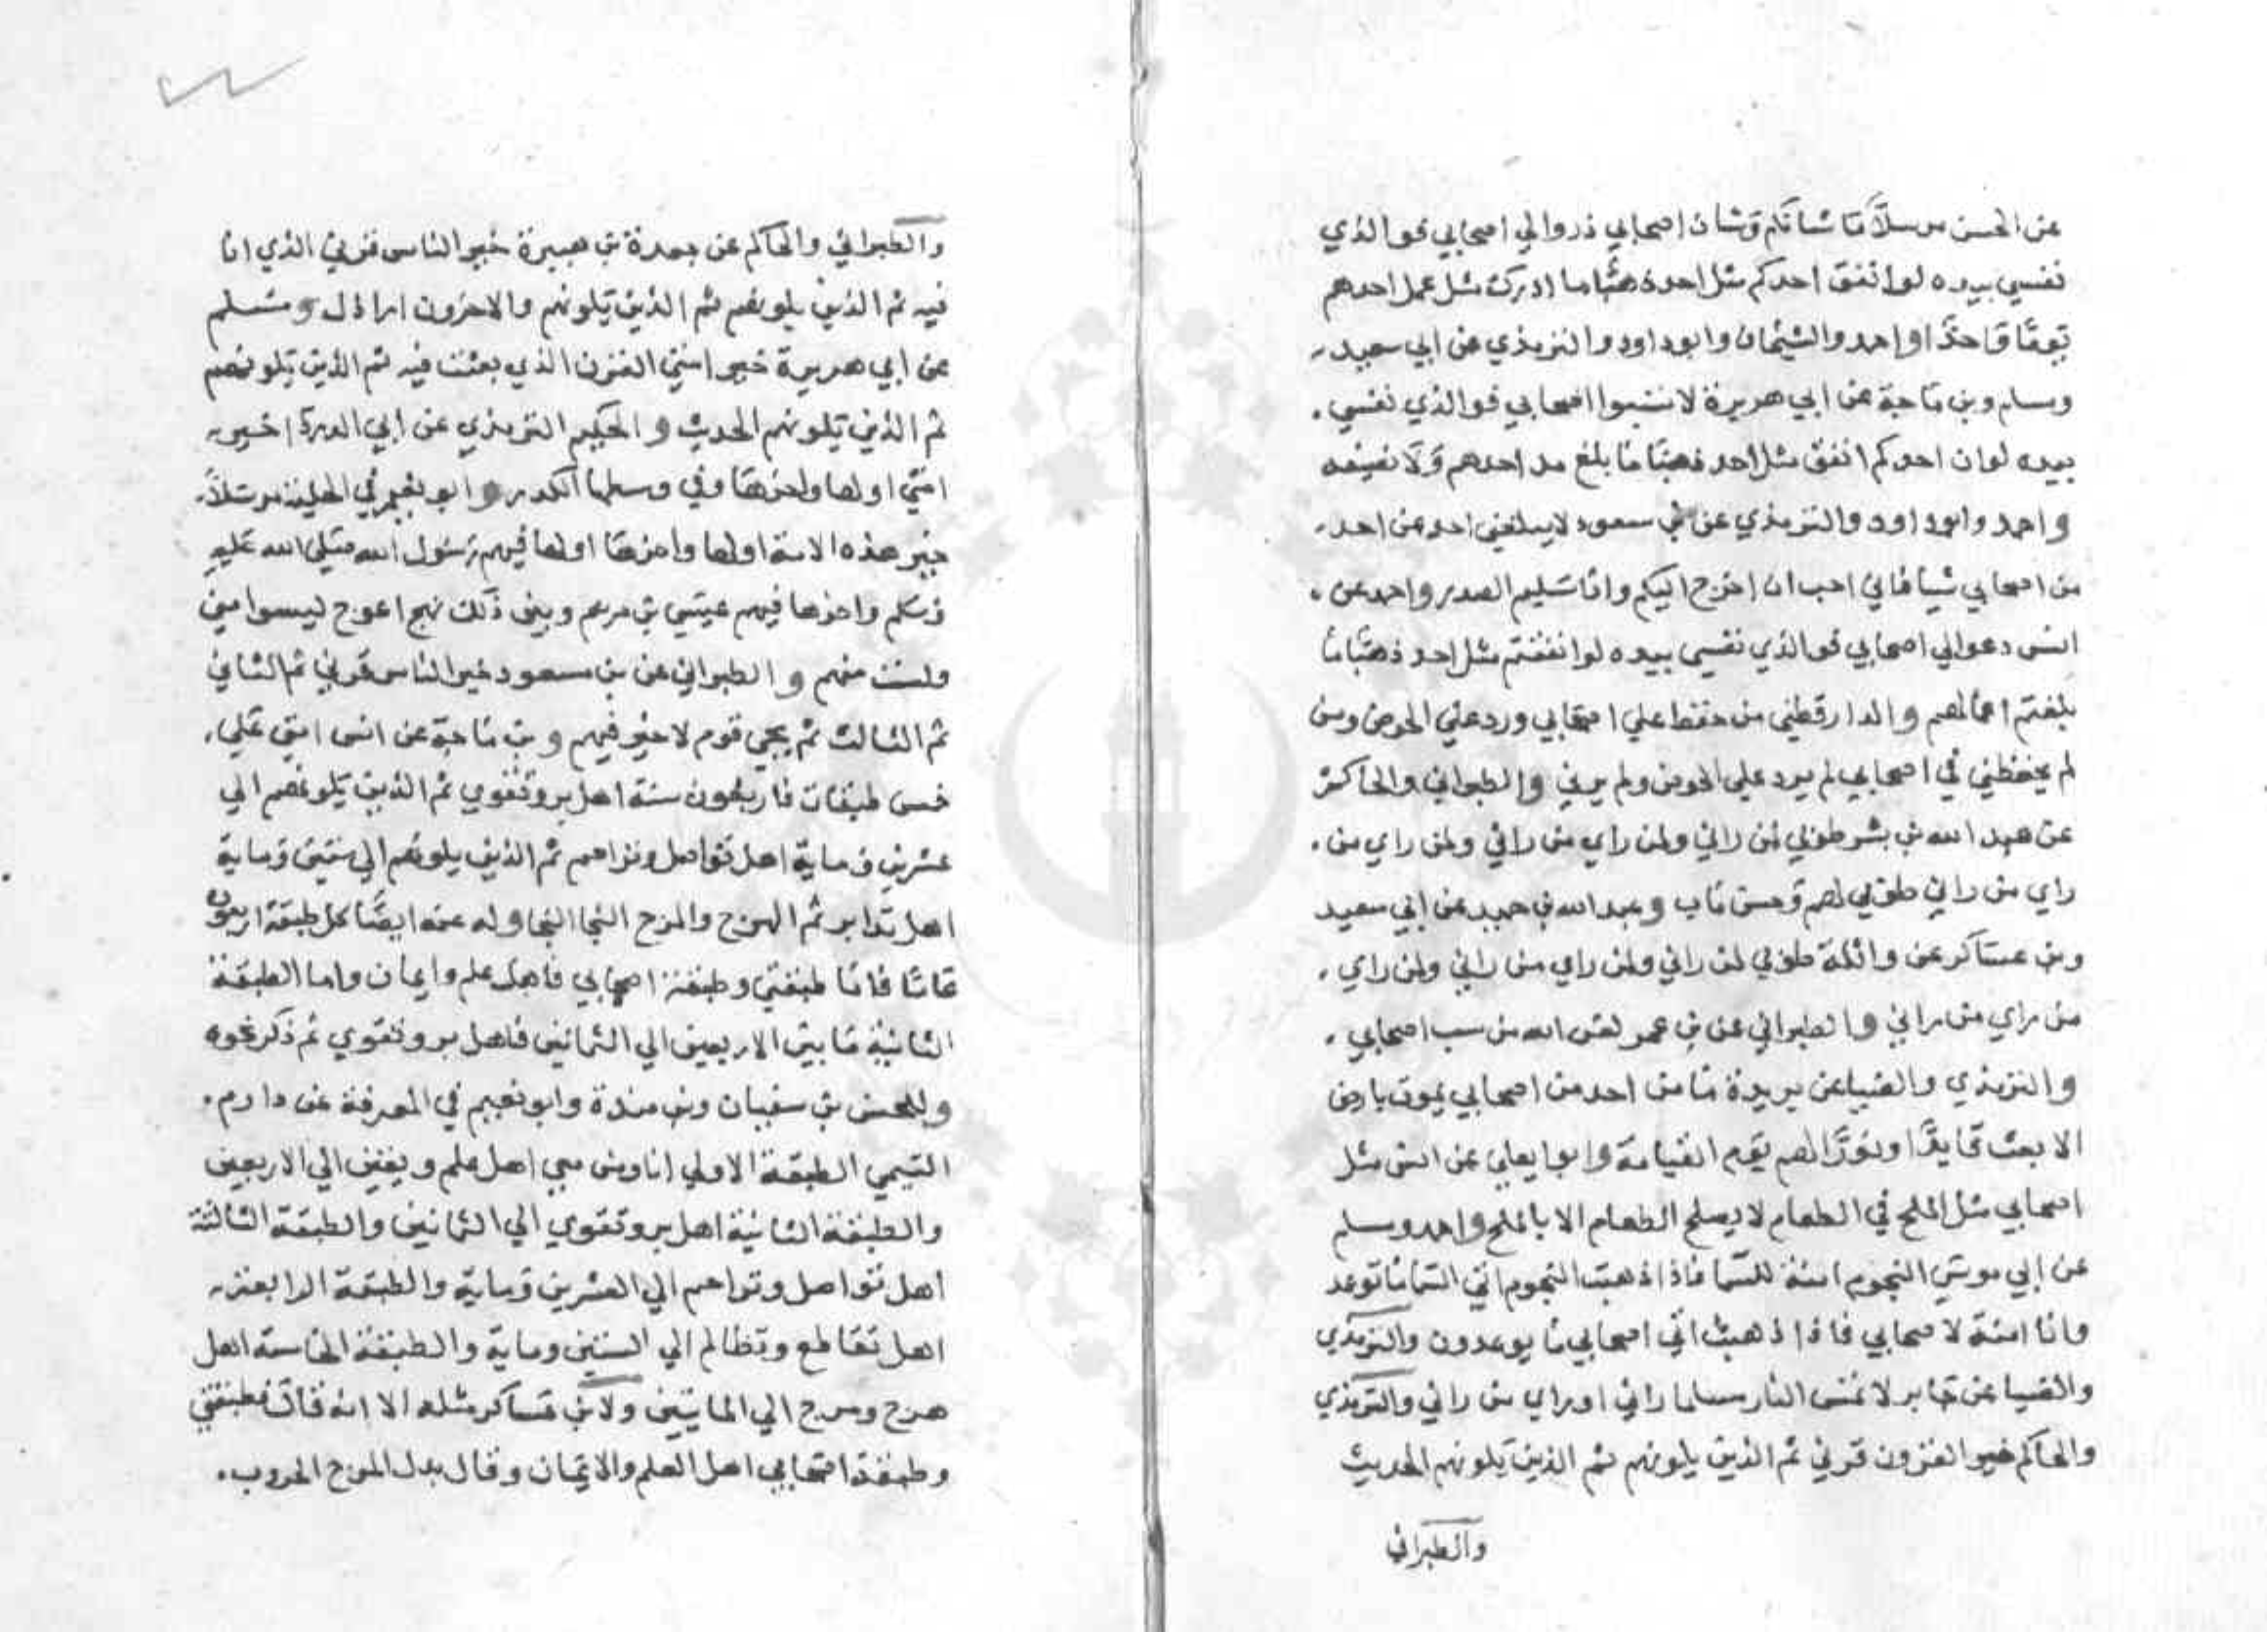 عن الحسن مرسلا ما شانكم وشان اصحابي ذروا لي اصحابي فوالذي
نفسي بيده لو انفق احدكم مثل احد ذهبا ما ادرك مثل عمل احدهم
يوما واحدا واحمد والشيخان وابوداود والترمذي عن ابي سعيد
ومسلم وبن ماجة عن ابي هريرة لا تسبوا اصحابي فوالذي نفسي
بيده لو ان احدكم انفق مثل احد ذهبا ما بلغ مد احدهم ولا نصيفه
واحمد وابوداود والترمذي عن بن مسعود لا يبلغني احد عن احد
من اصحابي شيا فاني احب ان اخرج اليكم وانا سليم الصدر واحمد عن
انس دعوا لي اصحابي فوالذي نفسي بيده لو انفقتم مثل احد ذهبا ما
بلغتم اعمالهم والدارقطني من حفظ علي اصحابي ورد علي الحوض ومن
لم يحفظني في اصحابي لم يرد علي الحوض ولم يرني والطبراني والحاكم
عن عبد الله بن بشر طوبي لمن راني ولمن راي من راني ولمن راي من
راي من راني طوبي لهم وحسن ماب وعبد الله بن حميد عن ابي سعيد
وبن عساكر عن واثلة طوبي لمن راني ولمن راي من راني ولمن راي
من راي من راني والطبراني عن بن عمر لعن الله من سب اصحابي
والترمذي والضيا عن بريدة ما من احد من اصحابي يموت بارض
الا بعث قايدا ونورا لهم يوم القيامة وابو يعلي عن انس مثل
اصحابي مثل الملح في الطعام لا يصلح الطعام الا بالملح واحمد ومسلم
عن ابي موسي النجوم امنة للسما فاذا ذهبت النجوم اتي السما ما توعد
وانا امنة لاصحابي فاذا ذهبت اتي اصحابي ما يوعدون والترمذي
والضيا عن جابر لا تمس النار مسلما راني او راي من راني والترمذي
والحاكم خير القرون قرني ثم الذين يلونهم ثم الذين يلونهم الحديث
والطبراني
والطبراني والحاكم عن جعدة بن هبيرة خير الناس قرني الذي انا
فيه ثم الذين يلونهم ثم الذين يلونهم والاخرون اراذل ومسلم
عن ابي هريرة خير امتي القرن الذي بعثت فيه ثم الذين يلونهم
ثم الذين يلونهم الحديث والحكيم الترمذي عن ابي الدردا خير
امتي اولها واخرها وفي وسطها الكدر وابو نعيم في الحلية مرسلا
خير هذه الامة اولها واخرها اولها فيهم رسول الله صلي الله عليه
وسلم واخرها فيهم عيسي بن مريم وبين ذلك نهج اعوج ليسوا مني
ولست منهم والطبراني عن بن مسعود خير الناس قرني ثم الثاني
ثم الثالث ثم يجي قوم لا خير فيهم وبن ماجة عن انس امتي علي
خمس طبقات فاربعون سنة اهل بر وتقوي ثم الذين يلونهم الي
عشرين وماية اهل تواصل وتراحم ثم الذين يلونهم الي ستين وماية
اهل تدابر ثم الهرج والمرج النجا النجا وله عنه ايضا كل طبقة اربعون
عاما فاما طبقتي وطبقة اصحابي فاهل علم وايمان واما الطبقة
الثانية ما بين الاربعين الي الثمانين فاهل بر وتقوي ثم ذكر نحوه
وللحسن بن سفيان وبن مندة وابو نعيم في المعرفة عن دارم
التميمي الطبقة الاولي انا ومن معي اهل علم ويقين الي الاربعين
والطبقة الثانية اهل بر وتقوي الي الثمانين والطبقة الثالثة
اهل تواصل وتراحم الي العشرين وماية والطبقة الرابعة
اهل تقاطع وتظالم الي الستين وماية والطبقة الخامسة اهل
هرج ومرج الي المايتين ولابن عساكر مثله الا انه قال فطبقتي
وطبقة اصحابي اهل العلم والايمان وقال بدل المرج الحروب